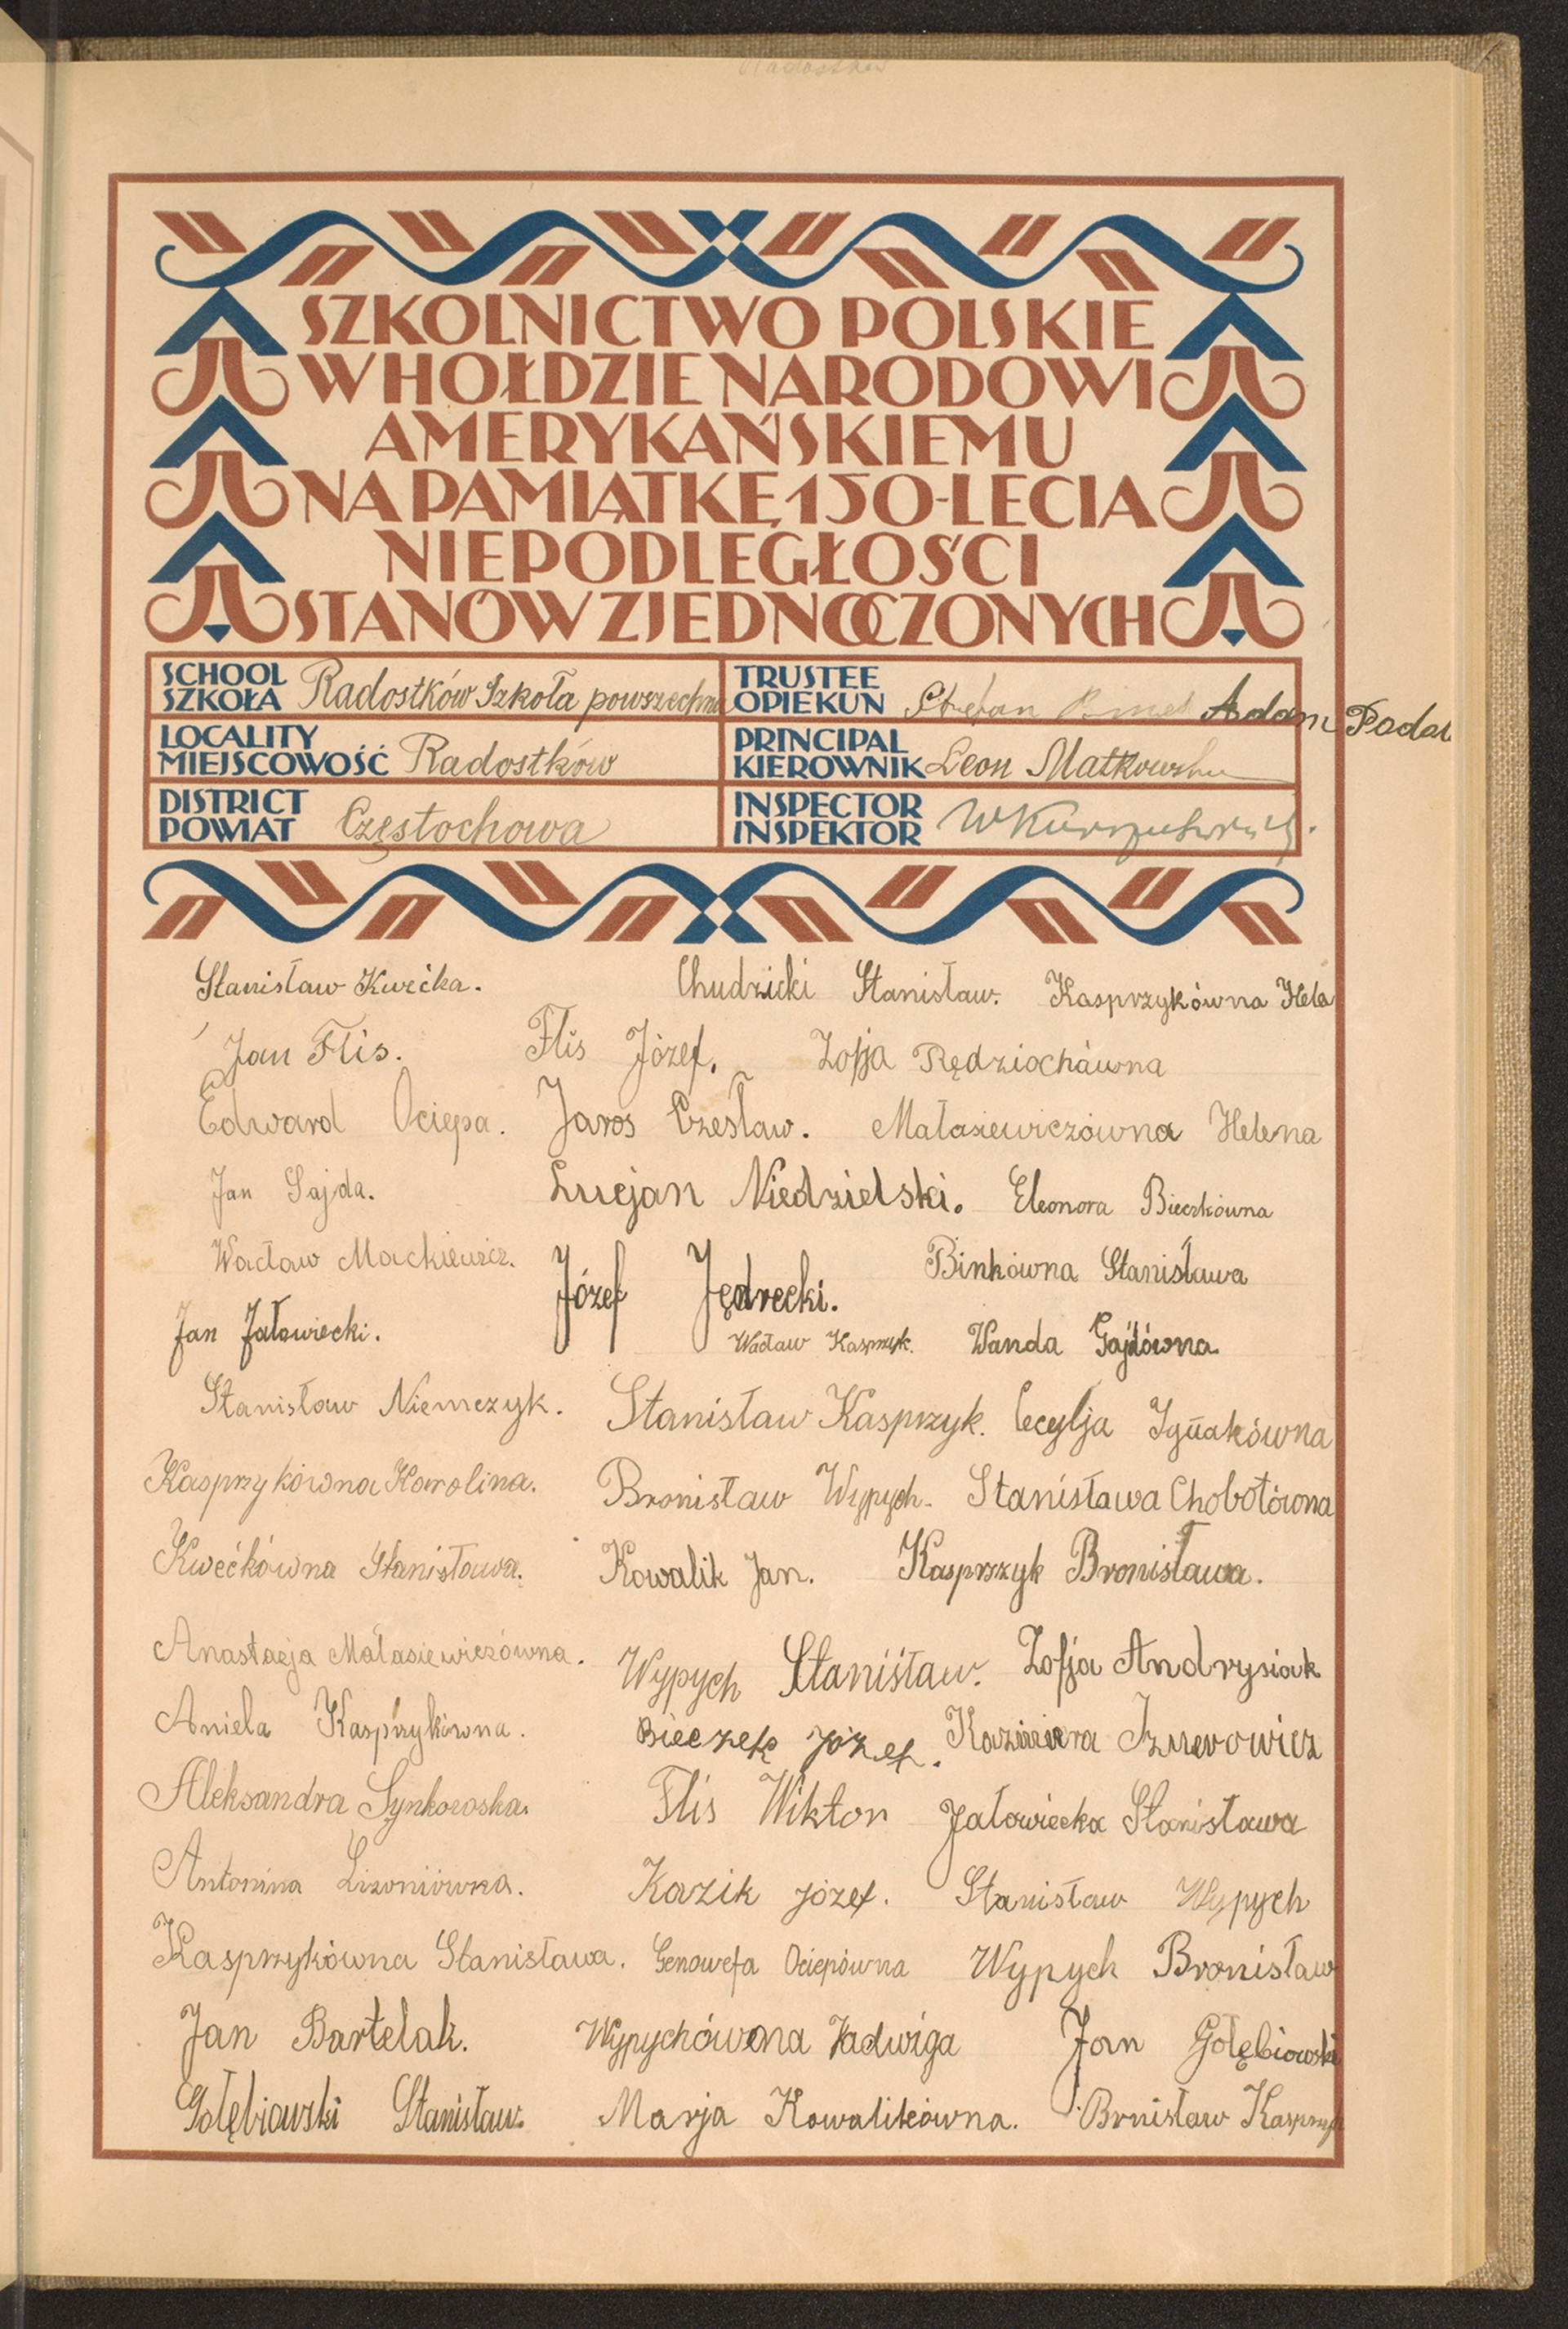 Radostków
SZKOLNICTWO POLSKIE
W HOŁDZIE NARODOWI
AMERYKAŃSKIEMU
NA PAMIĄTKĘ 150-LECIA
NIEPODLEGŁOŚCI
STANÓW ZJEDNOCZONYCH
SCHOOL
SZKOŁA Radostków Szkoła powszechna
TRUSTEE
OPIEKUN Stefan Adam
LOCALITY
MIEJSCOWOŚĆ Radostków
PRINCIPAL
KIEROWNIK Leon Matkowski
DISTRICT
POWIAT Częstochowa
INSPECTOR
INSPEKTOR
Stanisław Kwećka. Chudzicki Stanisław. Kasprzykówna Hela
Jan Flis. Flis Józef. Zofja Rędziochówna
Edward Ociepa. Jaros Czesław. Małasiewiczówna Helena
Jan Sajda. Lucjan Niedzielski. Eleonora Bieczkówna
Wacław Mackiewicz. Józef Jędrecki. Binkówna Stanisława
Jan Jałowiecki. Wacław Kasprzyk. Wanda Gajdówna
Stanisław Niemczyk. Stanisław Kasprzyk. Cecylja Ignakówna
Kasprzykówna Karolina. Bronisław Wypych. Stanisława Chobotówna
Kwećkówna Stanisława. Kowalik Jan. Kasprzyk Bronisława.
Anastazja Małasiewiczówna. Wypych Staniśław. Zofja Andrysiak
Aniela Kasprzykówna. Bieczek Józef. Kazimiera
Aleksandra Synkowska. Flis Wiktor Jałowiecka Stanisława
Antonina Lizoniówna. Kazik Józef. Stanisław Wypych
Kasprzykówna Stanisława. Genowefa Ociepówna Wypych Bronisław
Jan Bartelak. Wypychówna Jadwiga Jan Gołębiowski
Gołębiowski Stanisław. Marja Kowalikówna. Brnisław Kasprzyk